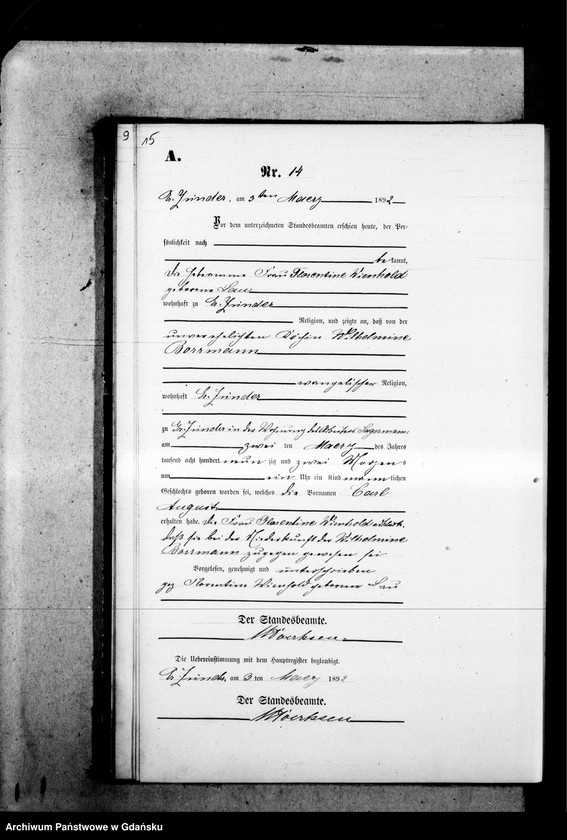 9 15
A.
Nr. 14
Gr. Zünder, am 3ten Maerz 1892
Vor dem unterzeichneten Standesbeamten erschien heute, der Per-
sönlichkeit nach
be kannt,
die Hebeamme Frau Florentine Wienhold
geborene Lau
wohnhaft zu Gr. Zünder
Religion, und zeigte an, daß von der
unverehelichten Köchin Wilhelmine
Borrmann
evangelischer Religion,
wohnhaft Gr. Zünder
zu Gr. Zünder in der Wohnung des Arbeiters
am zwei ten Maerz des Jahres
tausend acht hundert neun zig und zwei Morgens
um ein Uhr ein Kind maennlichen
Geschlechts geboren worden sei, welches die Vornamen Carl
August
erhalten habe. Die Frau Florentine Wienhold erklärte,
daß sie bei der Niederkunft der Wilhelmine
Borrmann zugegen gewesen sei
Vorgelesen, genehmigt und unterschrieben
gez Florentine Wienhold geborene Lau
Der Standesbeamte.
Die Uebereinstimmung mit dem Hauptregister beglaubigt.
Gr. Zünder, am 3 ten Maerz 1892
Der Standesbeamte.
Archiwum Państwowe w Gdańsku